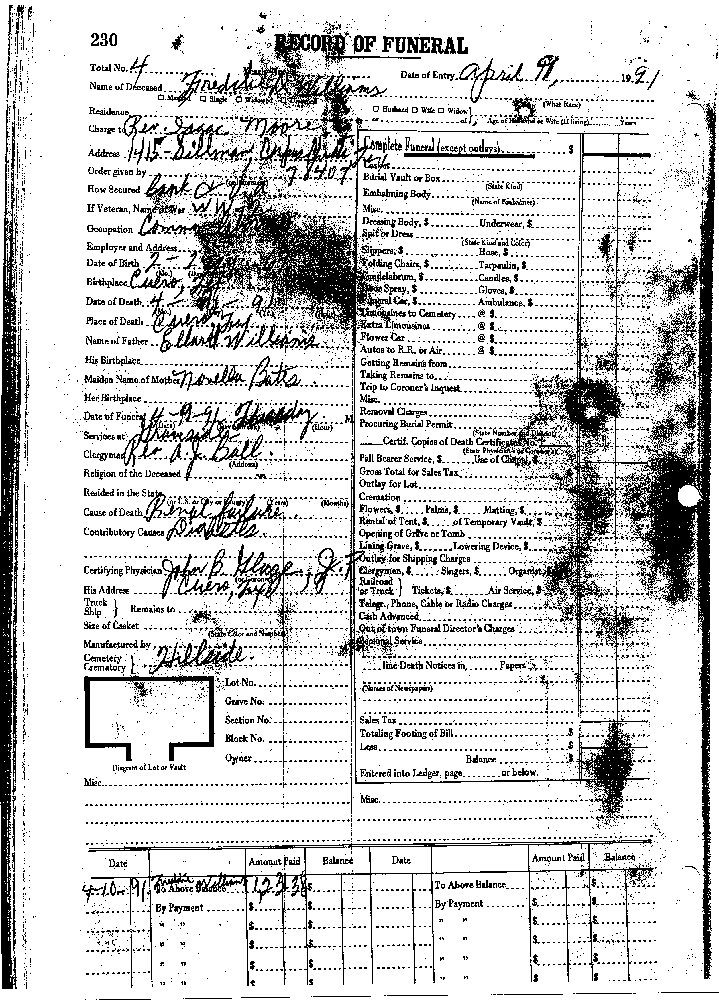 230
RECORD OF FUNERAL
Total No. 4
Date of Entry April 9, 1991
Name of Deceased Williams
Married Single Widowed
Husband Wife Widow
(What Race)
of Age of Husband or Wife (if living) Years
Residence
Charge to Rev. Isaac Moore
Address 1415
Order given by 78407
How Secured
If Veteran, Name of War WW
Occupation
Employer and Address
Date of Birth 2-2
Birthplace Cuero, Tex
Date of Death 4- -91
Place of Death Cuero, Tex
Name of Father Williams
His Birthplace
Maiden Name of Mother Novella Batts
Her Birthplace
Date of Funeral 4-9-91 M
(Hour)
Services at
Clergyman Rev. A. J. Ball
(Address)
Religion of the Deceased
Resided in the State
(Months)
Cause of Death Renal failure
Contributory Causes Diabetes
Certifying Physician John B. J.P.
His Address Cuero, Tex
Truck Ship } Remains to
Size of Casket
(State Color and Number)
Manufactured by
Cemetery Crematory } Hillside
Lot No.
Grave No.
Section No.
Block No.
Owner
Diagram of Lot or Vault
Misc.
Complete Funeral (except outlays) $
Casket
Burial Vault or Box
(State Kind)
Embalming Body
(Name of Embalmer)
Misc.
Dressing Body, $ Underwear, $
Suit or Dress
(State Kind and Color)
Slippers, $ Hose, $
Folding Chairs, $ Tarpaulin, $
Candelabrum, $ Candles, $
Door Spray, $ Gloves, $
Funeral Car, $ Ambulance, $
Limousines to Cemetery @ $
Extra Limousines @ $
Flower Car @ $
Autos to R.R. or Air @ $
Getting Remains from
Taking Remains to
Trip to Coroner's Inquest
Misc.
Removal Charges
Procuring Burial Permit
Certif. Copies of Death Certificate
Pall Bearer Service, $ Use of Chapel, $
Gross Total for Sales Tax
Outlay for Lot
Cremation
Flowers, $ Palms, $ Matting, $
Rental of Tent, $ of Temporary Vault, $
Opening of Grave or Tomb
Lining Grave, $ Lowering Device, $
Outlay for Shipping Charges
Clergymen, $ Singers, $ Organist, $
Railroad or Truck } Tickets, $ Air Service, $
Telegr., Phone, Cable or Radio Charges
Cash Advanced
Out of town Funeral Director's Charges
Personal Service
line Death Notices in Papers
(Names of Newspapers)
Sales Tax
Totaling Footing of Bill $
Less $
Balance $
Entered into Ledger, page or below.
Misc.
Date Amount Paid Balance Date Amount Paid Balance
4-10-91 To Above Balance $ 123 38 $ To Above Balance $ $
By Payment $ $ By Payment $ $
" " $ $ " " $ $
" " $ $ " " $ $
" " $ $ " " $ $
" " $ $ " " $ $